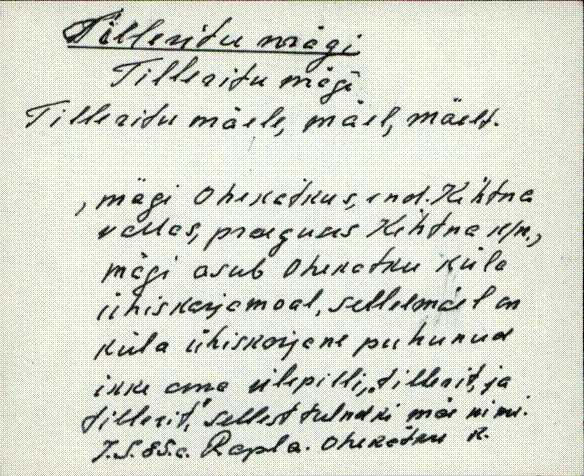 Tilleritu mägi
Tilleritu mägi
Tilleritu mäele, mäel, mäelt.
, mägi Ohekatkus, end. Kehtna
vallas, praeguses Kehtna k/n.,
mägi asub Ohekatku küla
ühiskarjamaal, sellel mäel on
küla ühiskarjane puhunud
ikke oma vilepilli, "tillerit, ja
tillerit", sellest tulndki mäe nimi.
J.S. 85.a. Rapla. Ohekatku k.